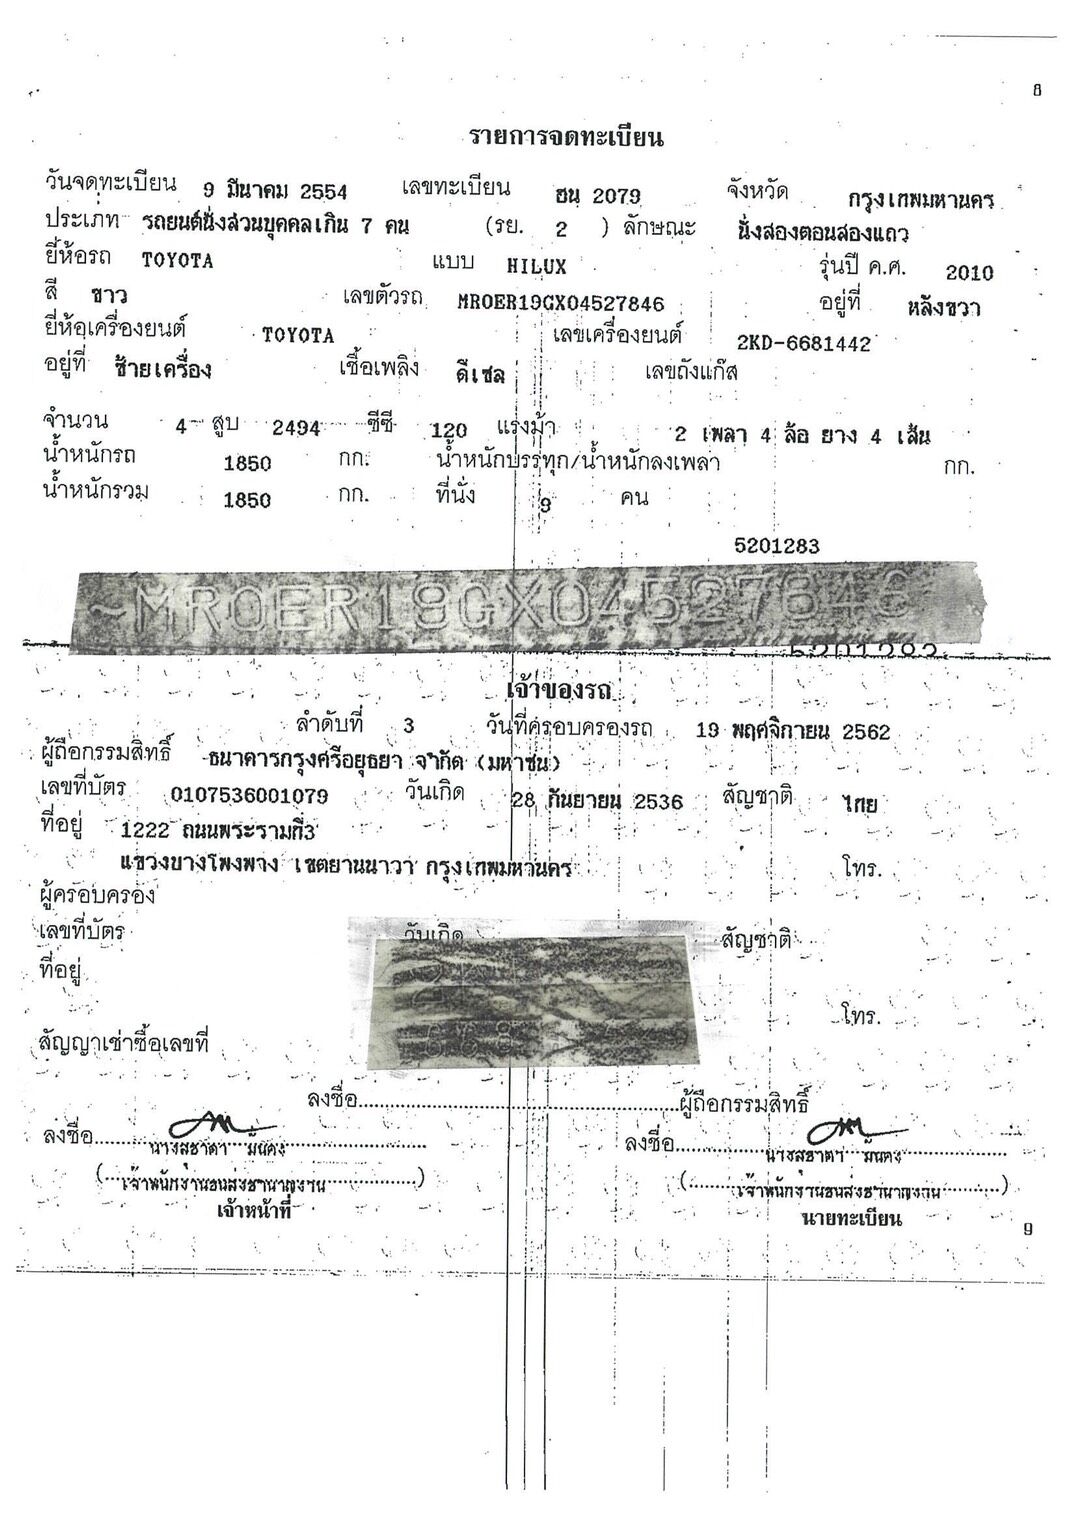 8
รายการจดทะเบียน
วันจดทะเบียน 9 มีนาคม 2554 เลขทะเบียน ฮน 2079 จังหวัด กรุงเทพมหานคร
ประเภท รถยนต์นั่งส่วนบุคคลเกิน 7 คน (รย. 2 ) ลักษณะ นั่งสองตอนสองแถว
ยี่ห้อรถ TOYOTA แบบ HILUX รุ่นปี ค.ศ. 2010
สี ขาว เลขตัวรถ MROER19GX04527846 อยู่ที่ หลังขวา
ยี่ห้อเครื่องยนต์ TOYOTA เลขเครื่องยนต์ 2KD-6681442
อยู่ที่ ซ้ายเครื่อง เชื้อเพลิง ดีเซล เลขถังแก๊ส
จำนวน 4 สูบ 2494 ซีซี 120 แรงม้า 2 เพลา 4 ล้อ ยาง 4 เส้น
น้ำหนักรถ 1850 กก. น้ำหนักบรรทุก/น้ำหนักลงเพลา กก.
น้ำหนักรวม 1850 กก. ที่นั่ง 9 คน
5201283
~MROER19GX04527846
5201283
เจ้าของรถ
ลำดับที่ 3 วันที่ครอบครองรถ 19 พฤศจิกายน 2562
ผู้ถือกรรมสิทธิ์ ธนาคารกรุงศรีอยุธยา จำกัด (มหาชน)
เลขที่บัตร 0107536001079 วันเกิด 28 กันยายน 2536 สัญชาติ ไทย
ที่อยู่ 1222 ถนนพระรามที่3
แขวงบางโพงพาง เขตยานนาวา กรุงเทพมหานคร โทร.
ผู้ครอบครอง
เลขที่บัตร วันเกิด สัญชาติ
ที่อยู่
โทร.
สัญญาเช่าซื้อเลขที่
ลงชื่อ........................................ผู้ถือกรรมสิทธิ์
ลงชื่อ นางสุชาดา มั่นคง ลงชื่อ นางสุชาดา มั่นคง
(เจ้าพนักงานขนส่งชำนาญงาน) (เจ้าพนักงานขนส่งชำนาญงาน)
เจ้าหน้าที่ นายทะเบียน
9